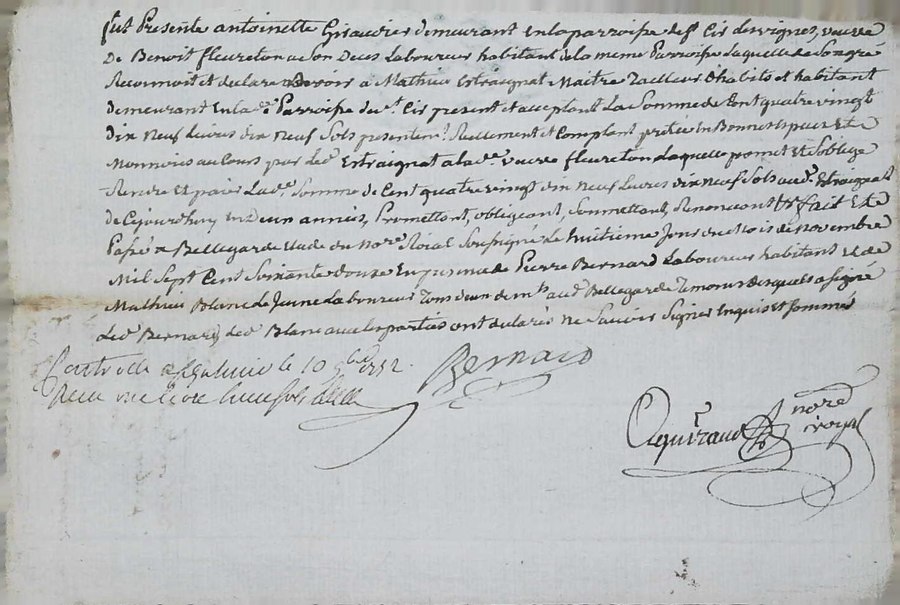 fut Presente antoinette Giraudier demeurant En la parroisse de st Cir des vignes, veuve
De Benoit fleureton a Son Deces Laboureur habitant de la meme Parroisse Laquelle de Son gré
Reconnoit et declare Devoir a Mathieu Estraignat Maitre Tailleur d'habits et habitant
demeurant En lad.e Parroisse de st. Cir present et acceptant La Somme de Cent quatre vingt
dix Neuf Livres dix Neuf Sols presentem.t Reellement et Comptant pretée En Bonnes Especes Et
Monnoies au Cours par Led. Estraignat a lad.e veuve fleureton Laquelle promet Et S'oblige
Rendre Et paier Lad.e Somme de Cent quatre vingt dix Neuf Livres dix Neuf Sols aud. Estraignat
de Cejourdhuy En deux années, Promettant, obligeant, Soumettant, Renonceant &c fait Et
Passé a Bellegarde Etude du No.re Roial Soussigné Le huitieme Jour du Mois de Novembre
Mil Sept Cent Soixante douze En presence de Pierre Bernard Laboureur habitant et de
Mathieu Blanc Le Jeune Laboureur Tous deux dem.ts aud. Bellegarde Temoins desquels a signé
Led. Bernard, Led. Blanc avec les parties ont declaré Ne Savoir Signer Enquis et Sommés
Controllé a St Galmier le 10 9bre 1772.
Recu une livre
Bernard
no.re
royal